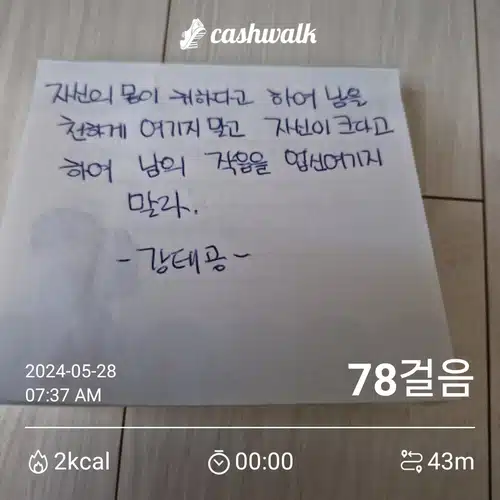 cashwalk
자신의 몸이 귀하다고 하여 남을
천하게 여기지 말고 자신이 크다고
하여 남의 작음을 업신여기지
말라.
-강태공-
2024-05-28
07:37 AM
78걸음
2kcal
00:00
43m